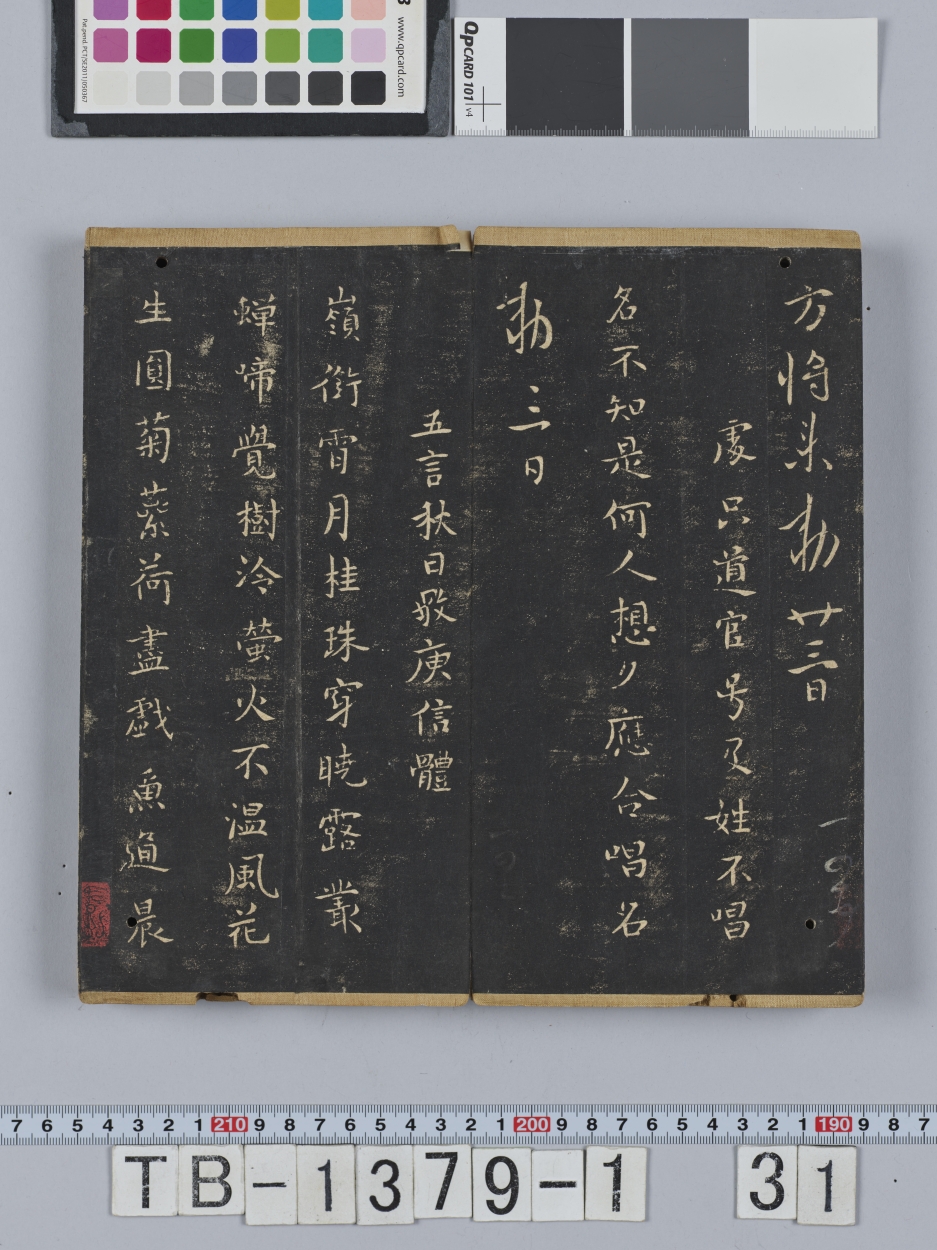 方将来勅廿三日
處只道官号及姓不唱
名不知是何人想〃應合唱名
勅 三日
五言秋日斅庾信體
嶺銜宵月桂珠穿曉露叢
蟬啼覺樹冷螢火不温風花
生圓菊蘂荷盡戲魚通晨
www.qpcard.com
Pat.pend. PCT/SE2011/050367
QPCARD 101 v4
7 6 5 4 3 2 1 210 9 8 7 6 5 4 3 2 1 200 9 8 7 6 5 4 3 2 1 190 9 8 7
TB-1379-1 31